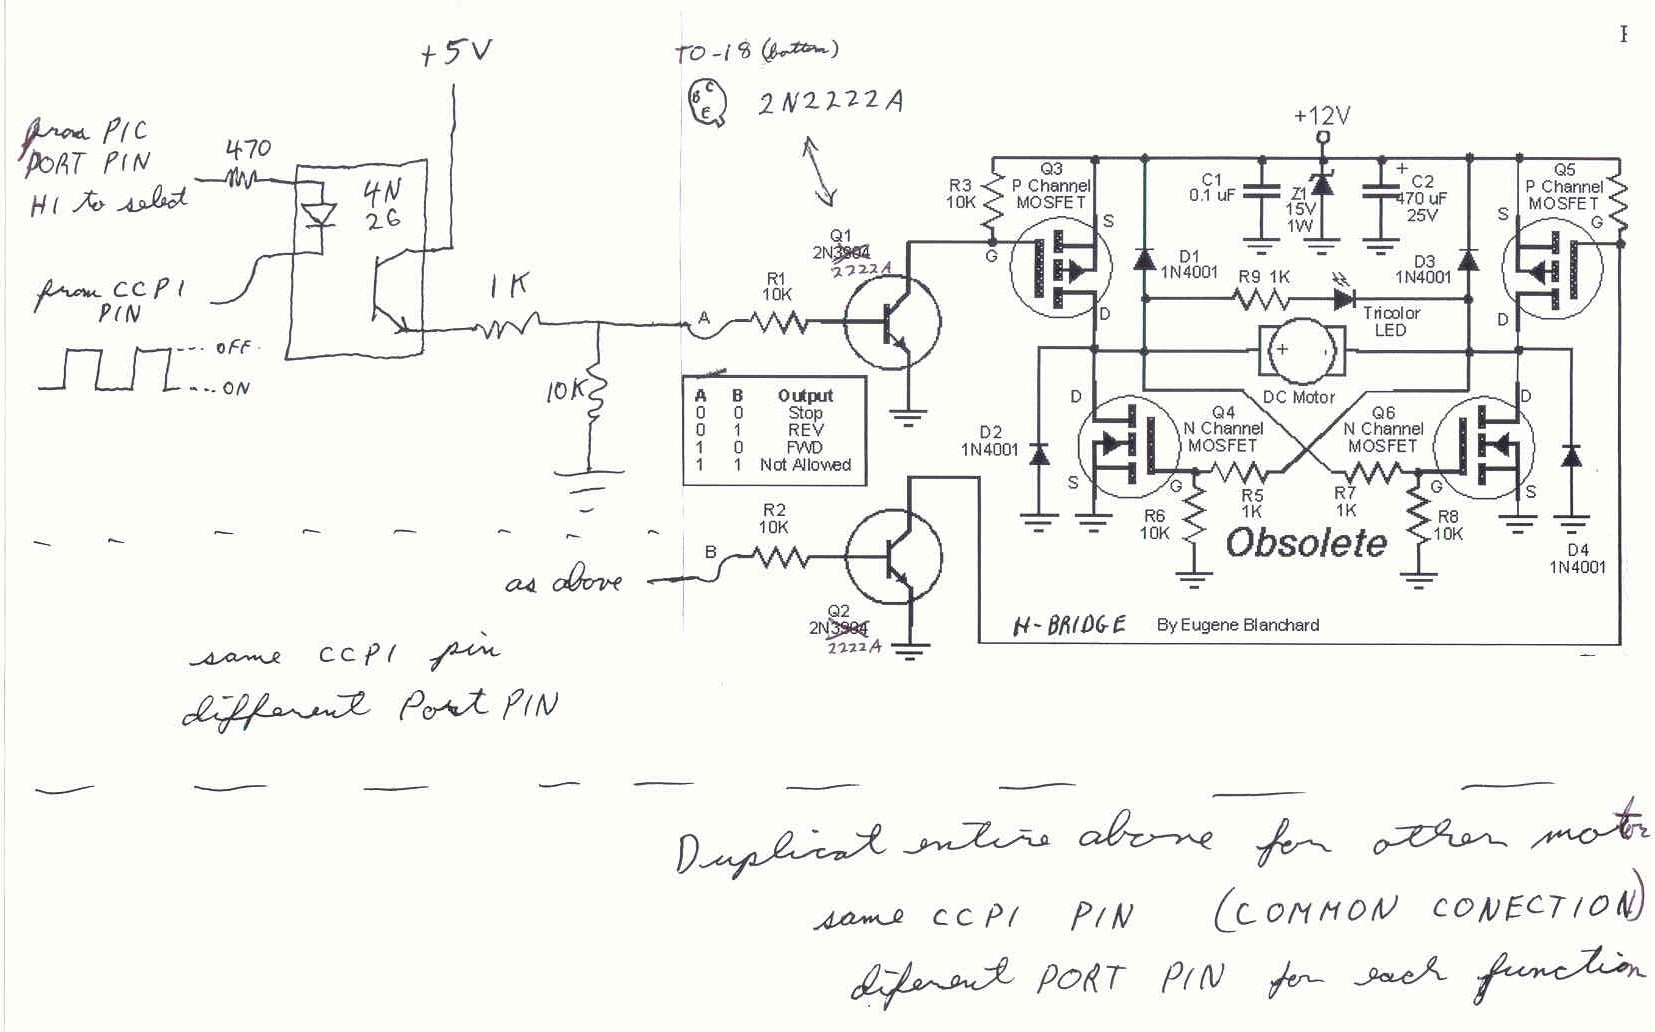 +5V
from PIC
PORT PIN
HI to select
470
4N
26
from CCP1
PIN
OFF
ON
1K
10K
TO-18 (bottom)
B C
E
2N2222A
A
R1
10K
Q1
2N3904
2222A
A B Output
0 0 Stop
0 1 REV
1 0 FWD
1 1 Not Allowed
as above
B
R2
10K
Q2
2N3904
2222A
same CCP1 pin
different Port PIN
+12V
R3
10K
Q3
P Channel
MOSFET
S
G
D
C1
0.1 uF
Z1
15V
1W
+
C2
470 uF
25V
Q5
P Channel
MOSFET
S
G
D
D1
1N4001
R9 1K
D3
1N4001
Tricolor
LED
+ -
DC Motor
D2
1N4001
D
S
G
Q4
N Channel
MOSFET
Q6
N Channel
MOSFET
D
S
G
R5
1K
R7
1K
R6
10K
R8
10K
D4
1N4001
Obsolete
H-BRIDGE By Eugene Blanchard
Duplicat entire above for other motor
same CCP1 PIN (COMMON CONECTION)
diferent PORT PIN for each function